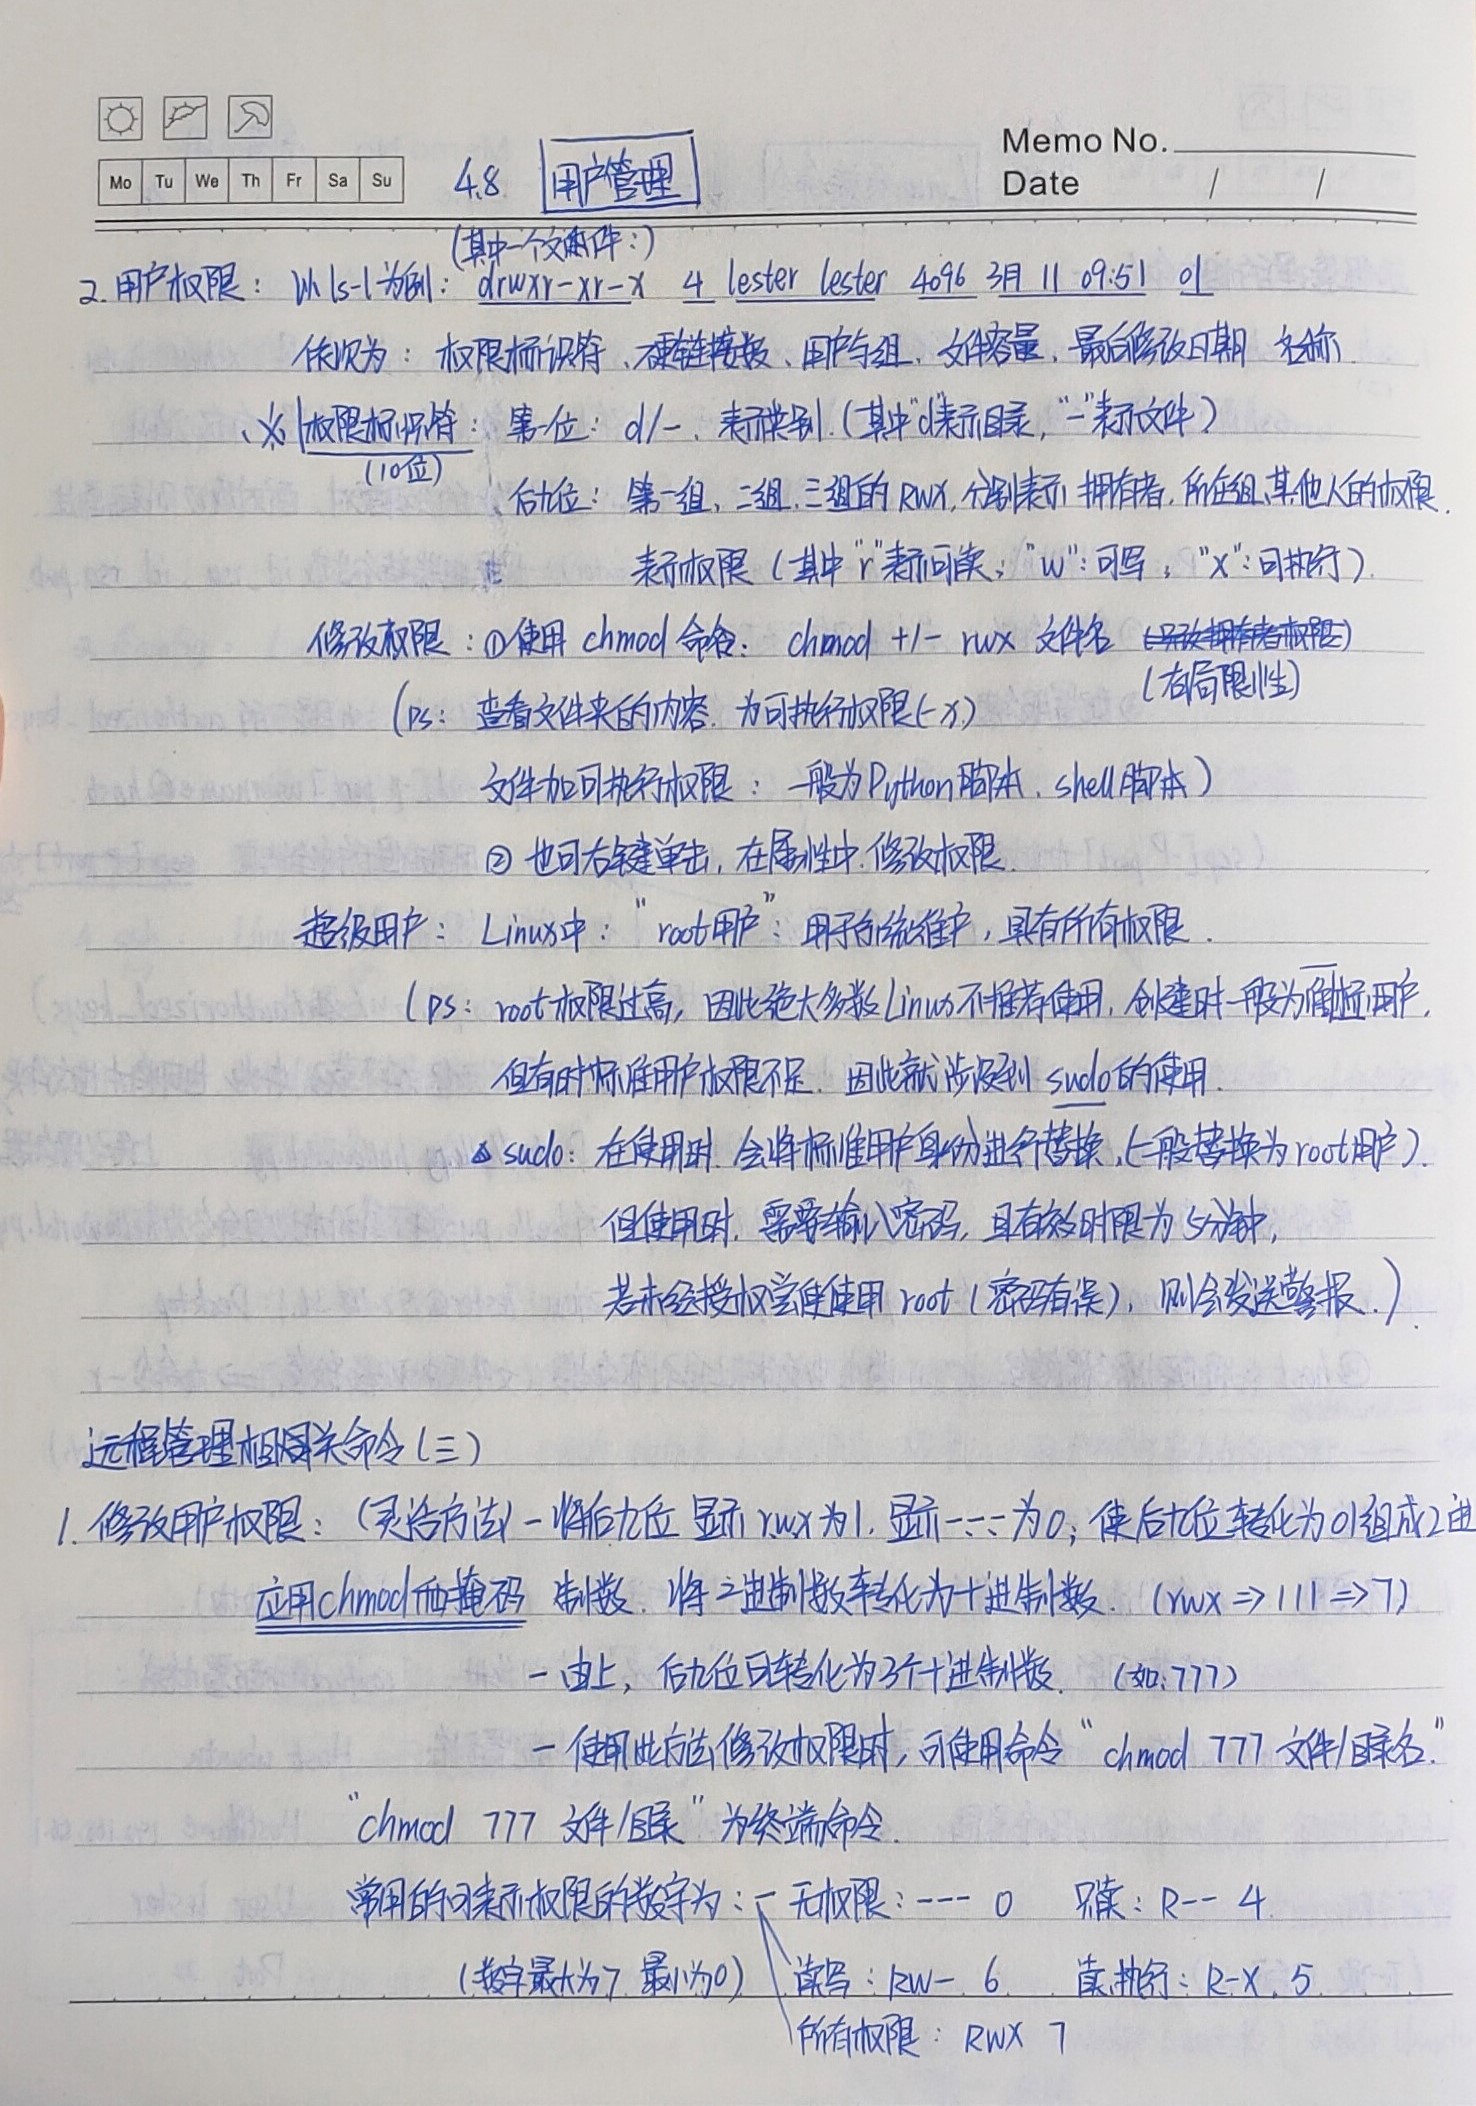 Memo No.
Mo Tu We Th Fr Sa Su
4.8 用户管理
Date / /
(其中一个文件:)
2. 用户权限: 以 ls-l 为例: drwxr-xr-x 4 lester lester 4096 3月 11 09:51 01
依次为: 权限标识符、硬链接数、用户与组、文件容量、最后修改日期 名称
※ 权限标识符: 第一位: d/-、表示类别.(其中"d"表示目录,"-"表示文件)
(10位)
后九位: 第一组、二组、三组的 RWX, 分别表示 拥有者, 所在组、其他人的权限.
表示权限 (其中"r"表示可读; "w":可写; "x":可执行).
修改权限: ①使用 chmod 命令: chmod +/- rwx 文件名 (只改拥有者权限)
(有局限性)
(ps: 查看文件夹的内容. 为可执行权限(-x)
文件加可执行权限: 一般为Python脚本、shell脚本)
② 也可右键单击, 在属性中.修改权限.
超级用户: Linux中: "root用户": 用于系统维护, 具有所有权限.
(ps: root权限过高, 因此绝大多数Linux不推荐使用, 创建时一般为标准用户,
但有时标准用户权限不足. 因此就涉及到 sudo的使用.
△ sudo: 在使用时. 会将标准用户身份进行替换,(一般替换为root用户).
但使用时. 需要输入密码, 且有效时限为5分钟,
若未经授权尝使使用 root (密码有误), 则会发送警报.)
远程管理相关命令(三)
1. 修改用户权限: (灵活方法) - 将后九位 显示 rwx 为1. 显示 --- 为0; 使后九位转化为01组成2进
应用chmod而掩码 制数. 将二进制数转化为十进制数. (rwx => 111 => 7)
- 由上, 后九位可转化为3个十进制数. (如:777)
- 使用此方法修改权限时, 可使用命令 "chmod 777 文件/目录名."
"chmod 777 文件/目录" 为终端命令.
常用的可表示权限的数字为: - 无权限: --- 0 只读: R-- 4
(数字最大为7 最小为0) 读写: RW- 6 读执行: R-X 5
所有权限: RWX 7